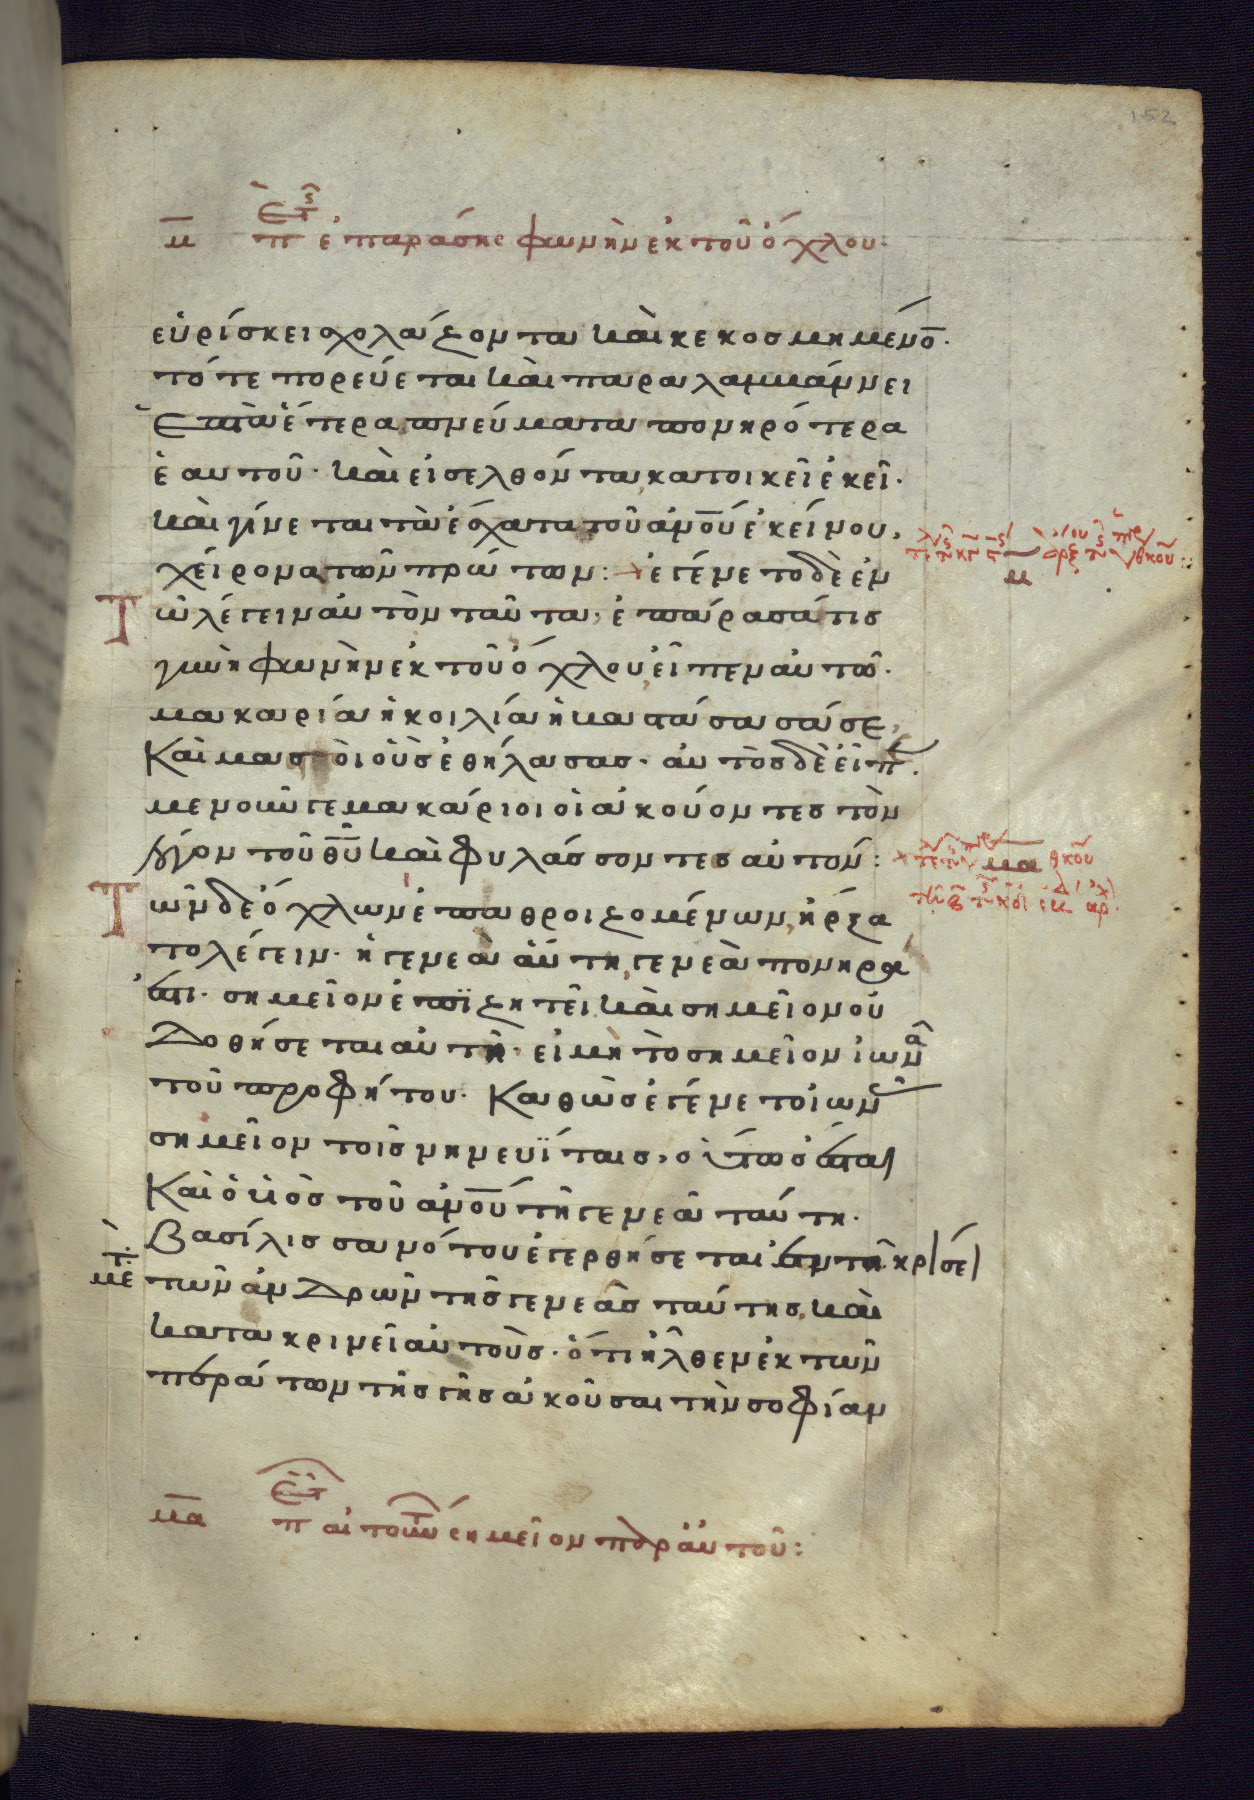 152
μ π(ερὶ) τ(ῆς) ἐπαράσης φωνὴν ἐκ τοῦ ὄχλου:
εὑρίσκει σχολάζοντα καὶ κεκοσμημένο̅·
τότε πορεύεται καὶ παραλαμβάννει
ἑπτὰ ἕτερα πνεύματα πονηρότερα
ἑαυτοῦ· καὶ εἰσελθόντα κατοικεῖ ἐκεῖ·
καὶ γίνεται τὰ ἔσχατα τοῦ ἀν̅ο̅υ̅ ἐκείνου,
χείρονα τῶν πρώτων: ἐγένετο δὲ ἐν
Τῶ λέγειν αὐτὸν ταῦτα· ἐπάρασά τις
γυνὴ φωνὴν ἐκ τοῦ ὄχλου εἶπεν αὐτῶ·
μακαρία ἡ κοιλία ἡ βαστάσασά σε,
καὶ μαστοὶ οὓς ἐθήλασας· αὐτὸς δὲ εἶπ(εν)·
μενοῦγε μακάριοι οἱ ἀκούοντες τὸν
λόγον τοῦ θ̅υ̅ καὶ φυλάσσοντες αὐτόν:
Τῶν δὲ ὄχλων ἐπαθροιζομένων, ἤρξα
το λέγειν· ἡ γενεὰ αὕτη, γενεὰ πονηρά
ἐστι· σημεῖον ἐπϊζητεῖ καὶ σημεῖον οὐ
δοθήσεται αὐτῆ· εἰ μὴ τὸ σημεῖον ἰωνᾶ
τοῦ προφήτου· καθὼς ἐγένετο ἰων(ᾶς)
σημεῖον τοῖς νηνευΐταις, οὕτως ἔσται
καὶ ὁ υἱὸς τοῦ ἀν̅ο̅υ̅ τῆ γενεᾶ ταύτη·
βασίλισσα νότου ἐγερθήσεται ἐν τῆ κρίσει
τῶν ἀνδρῶν τῆς γενεᾶς ταύτης, καὶ
κατακρινεῖ αὐτούς· ὅτι ἦλθεν ἐκ τῶν
περάτων τῆς γῆς ἀκοῦσαι τὴν σοφίαν
μα π(ερὶ) τ(ῶν) αἰτούντ(ων) σημεῖον παρ αὐτοῦ: